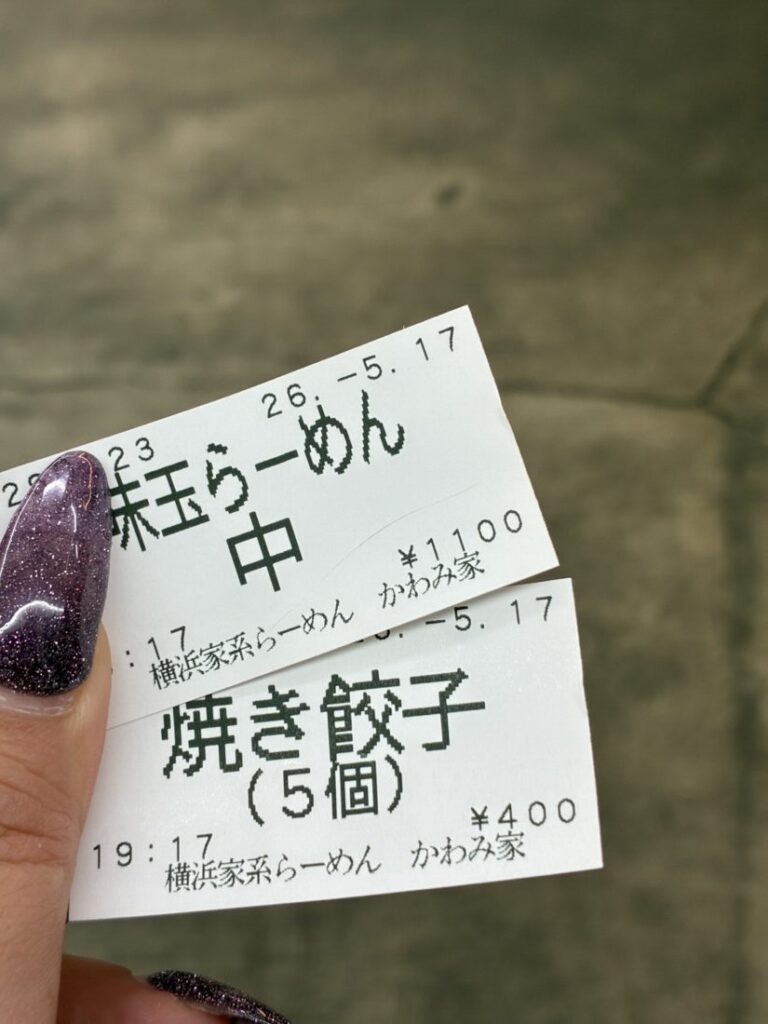 23
26.-5.17
味玉らーめん
中
¥1100
:17
横浜家系らーめん かわみ家
-5.17
焼き餃子
(5個)
¥400
19:17
横浜家系らーめん かわみ家